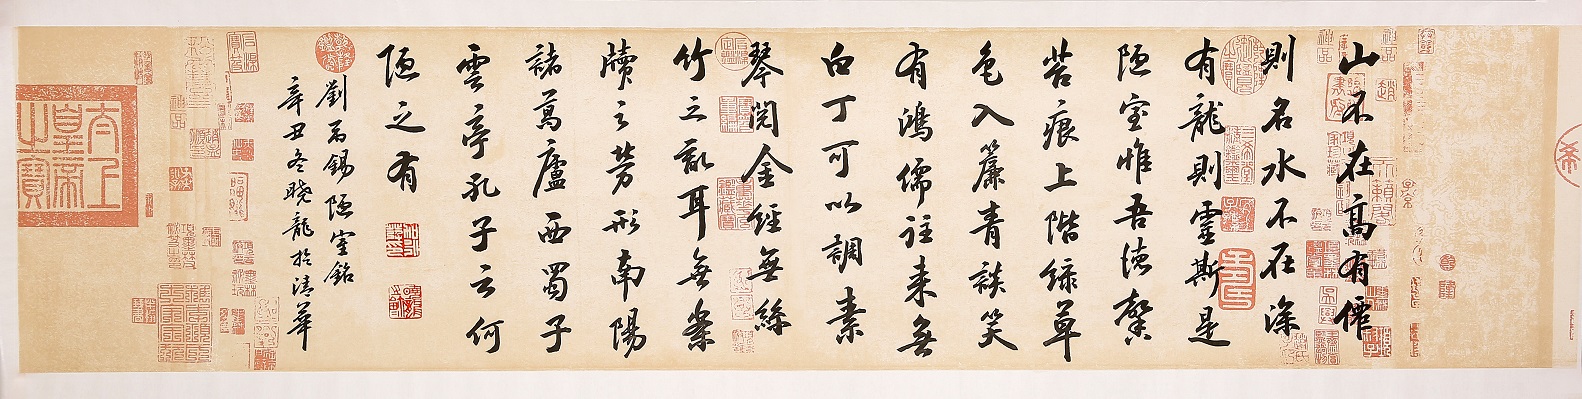 山不在高有僊
則名水不在深
有龍則靈斯是
陋室惟吾德馨
苔痕上階綠草
色入簾青談笑
有鴻儒往来無
白丁可以調素
琴閱金經無絲
竹之亂耳無案
牘之勞形南陽
諸葛廬西蜀子
雲亭孔子云何
陋之有
劉禹錫陋室銘
辛丑冬曉龍於清華
太上皇帝之寶